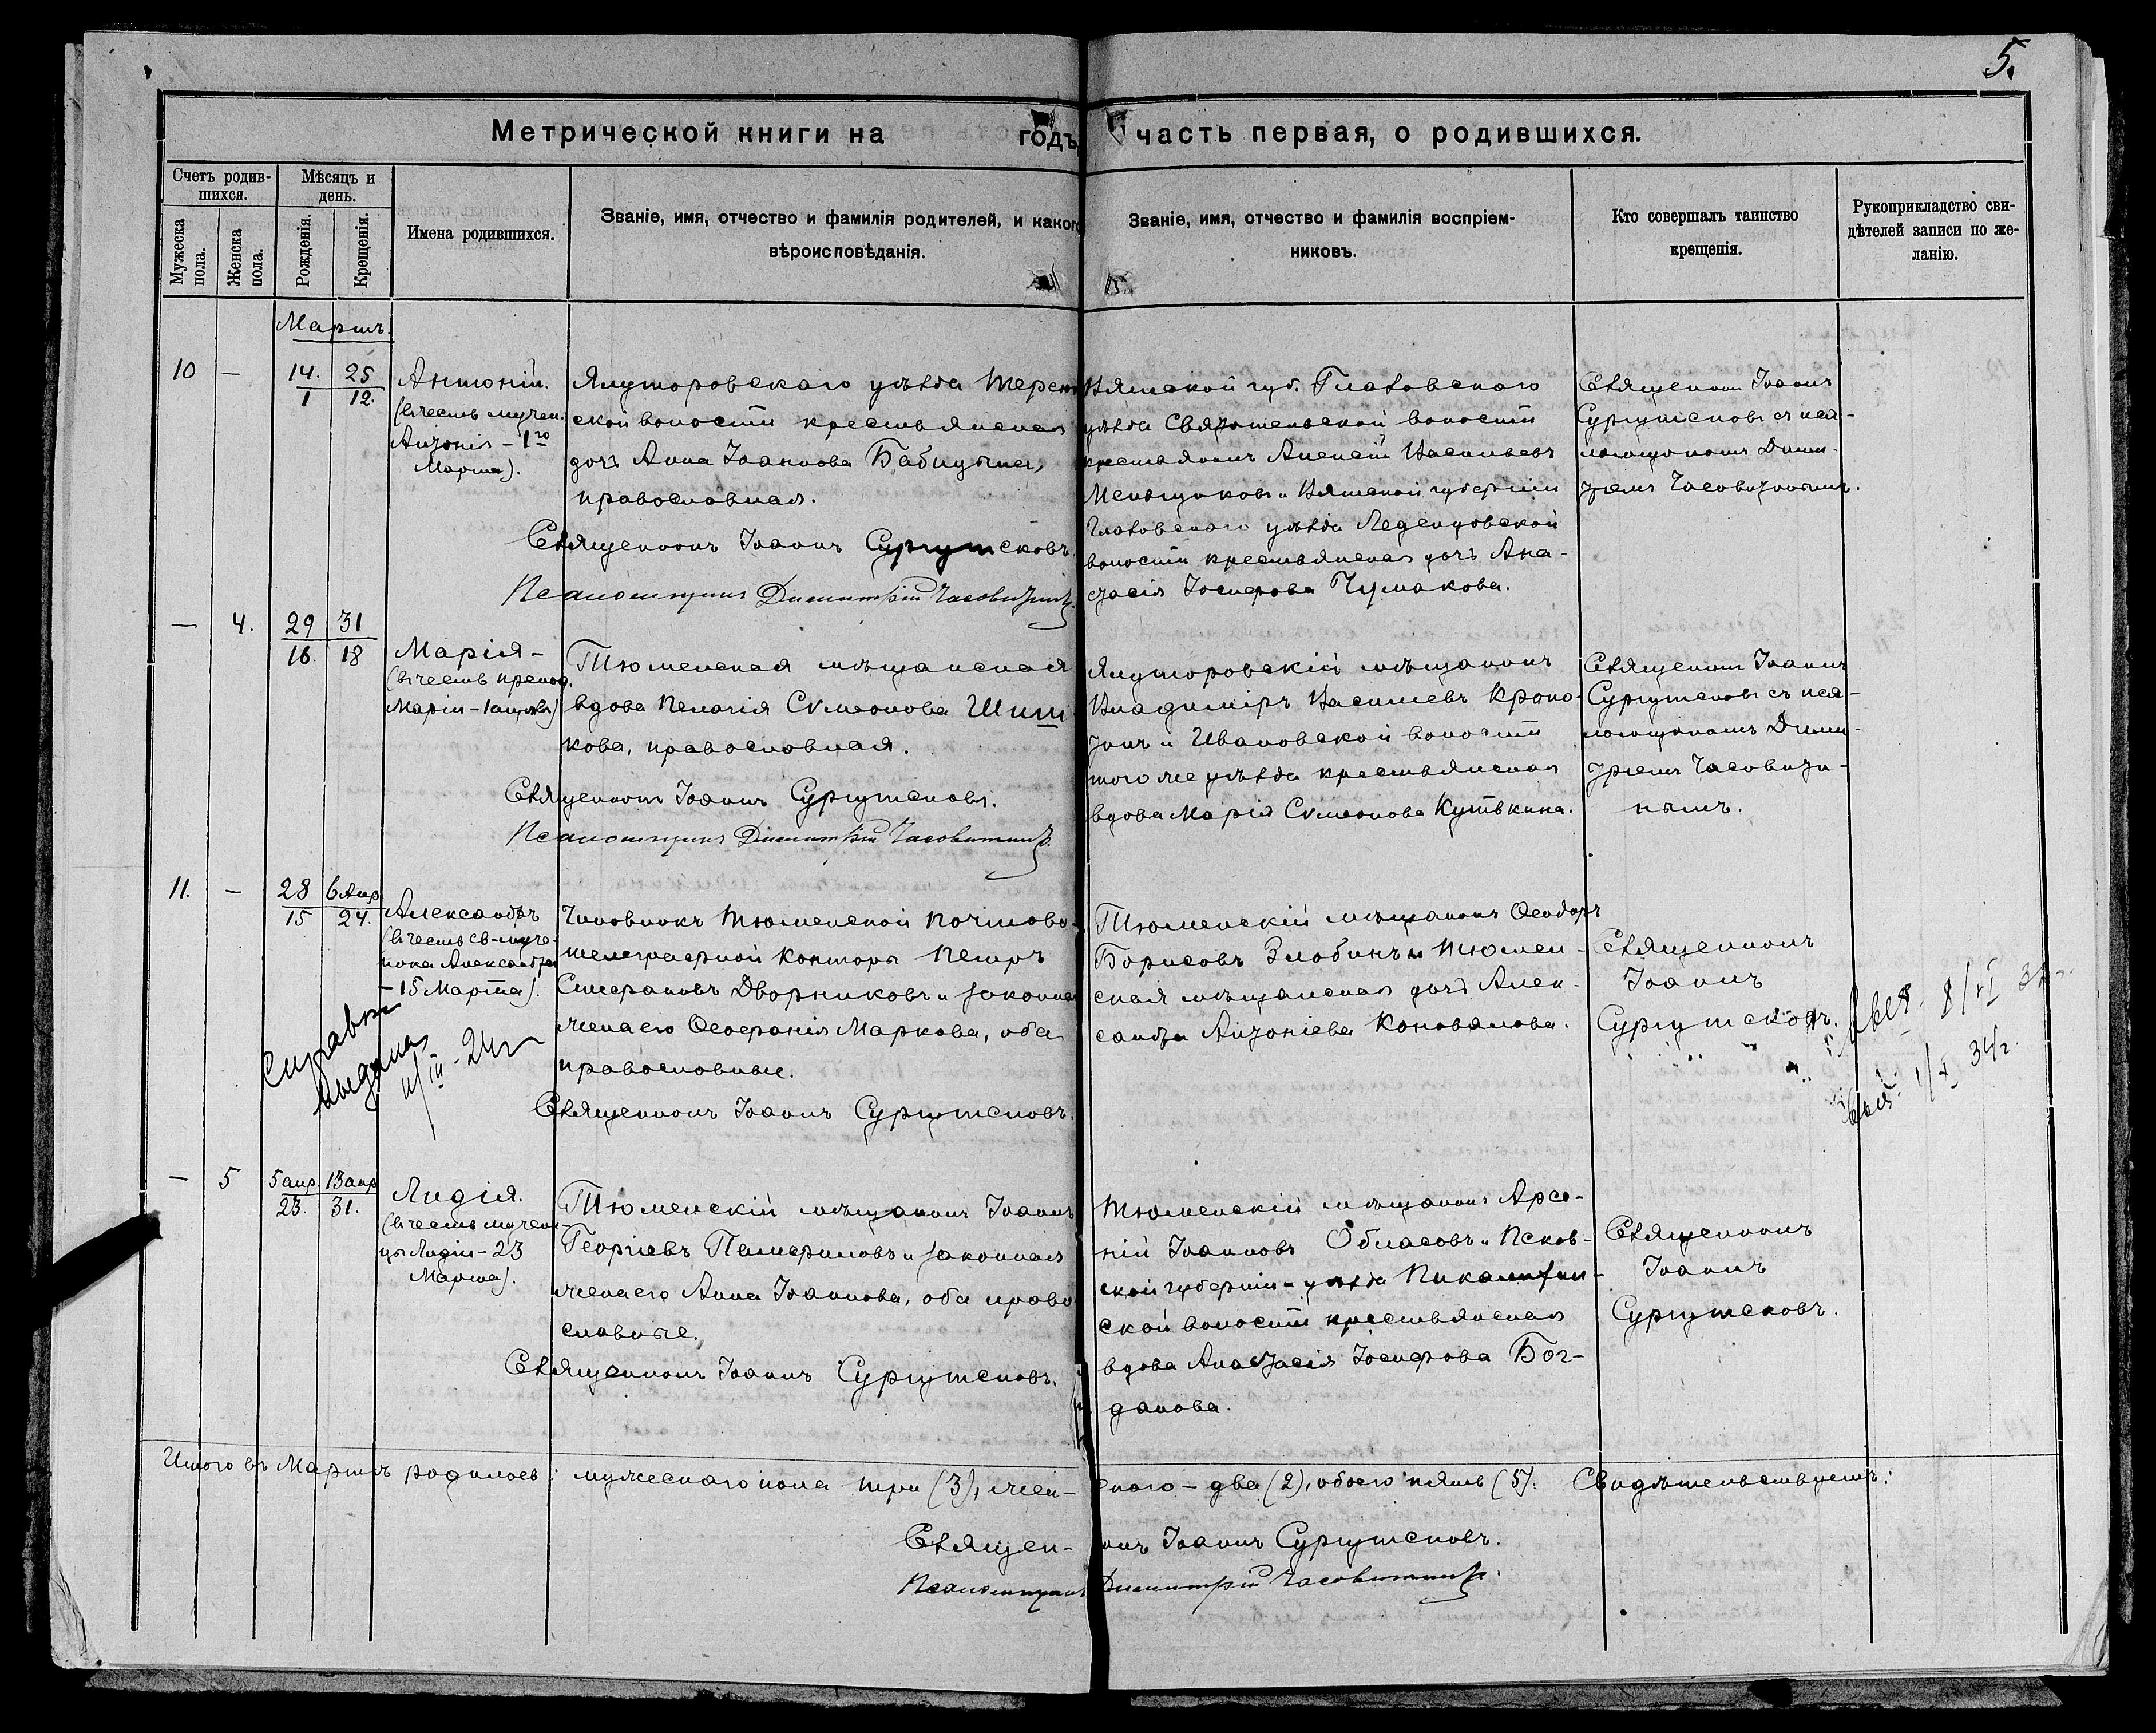 5.
Метрической книги на годъ, часть первая, о родившихся.
Счетъ родив-
шихся.
Мѣсяцъ и
день.
Мужеска
пола.
Женска
пола.
Рожденія.
Крещенія.
Имена родившихся.
Званіе, имя, отчество и фамилія родителей, и какого
вѣроисповѣданія.
Званіе, имя, отчество и фамилія воспріем-
никовъ.
Кто совершалъ таинство
крещенія.
Рукоприкладство сви-
дѣтелей записи по же-
ланію.
Мартъ.
10 — 14. 25
1 12.
Антоній.
(въ честь мучен.
Антонія - 1го
Марта).
Ялуторовскаго уѣзда
ской волости крестьянская
дочь Анна Іоаннова
православная.
Священникъ Іоаннъ Сургутсковъ.
Псаломщикъ Димитрій Часовитинъ.
Вятской губ. Глазовскаго
уѣзда Святогельской волости
крестьянинъ Алексій Васильевъ
Меньщиковъ и Вятской губерніи
Глазовскаго уѣзда Леденцовской
волости крестьянская дочь Ана-
стасія Іосифова Чумакова.
Священникъ Іоаннъ
Сургутсковъ съ пса-
ломщикомъ Дими-
тріемъ Часовитинымъ.
— 4. 29 31
16. 18
Марія -
(въ честь препод.
Маріи - 1 апрѣля)
Тюменская мѣщанская
вдова Пелагія Симеонова Шиш-
кова, православная.
Священникъ Іоаннъ Сургутсковъ.
Псаломщикъ Димитрій Часовитинъ.
Ялуторовскій мѣщанинъ
Владиміръ Васильевъ Кропо-
тинъ и Ивановской волости
того же уѣзда крестьянская
вдова Марія Симеонова Кутькина.
Священникъ Іоаннъ
Сургутсковъ съ пса-
ломщикомъ Дими-
тріемъ Часовити-
нымъ.
11. — 28 6 Апр.
15 24.
Александръ
(въ честь св-муче-
ника Александра
- 15 Марта).
Справка
выдана
11/III - 24 г
Чиновникъ Тюменской почтово-
телеграфной конторы Петръ
Стефановъ Дворниковъ и законная
жена его Ѳеофанія Маркова, оба
православные.
Священникъ Іоаннъ Сургутсковъ.
Тюменскій мѣщанинъ Ѳеодоръ
Борисовъ Злобинъ и Тюмен-
ская мѣщанская дочь Алек-
сандра Антоніева Коновалова.
Священникъ
Іоаннъ
Сургутсковъ.
34 г.
— 5 5 апр. 13 апр
23. 31.
Лидія.
(въ честь мучени-
цы Лидіи - 23
Марта).
Тюменскій мѣщанинъ Іоаннъ
Георгіевъ Памфиловъ и законная
жена его Анна Іоаннова, оба право-
славные.
Священникъ Іоаннъ Сургутсковъ.
Тюменскій мѣщанинъ Арсе-
ній Іоанновъ Обласовъ и Псков-
ской губерніи и уѣзда
ской волости крестьянская
вдова Анастасія Іосифова Бог-
данова.
Священникъ
Іоаннъ
Сургутсковъ.
Итого въ Мартѣ родилось: мужескаго пола три (3), жен-скаго - два (2), обоего пять (5). Свидѣтельствуемъ:
Священ-никъ Іоаннъ Сургутсковъ.
Псаломщикъ Димитрій Часовитинъ.